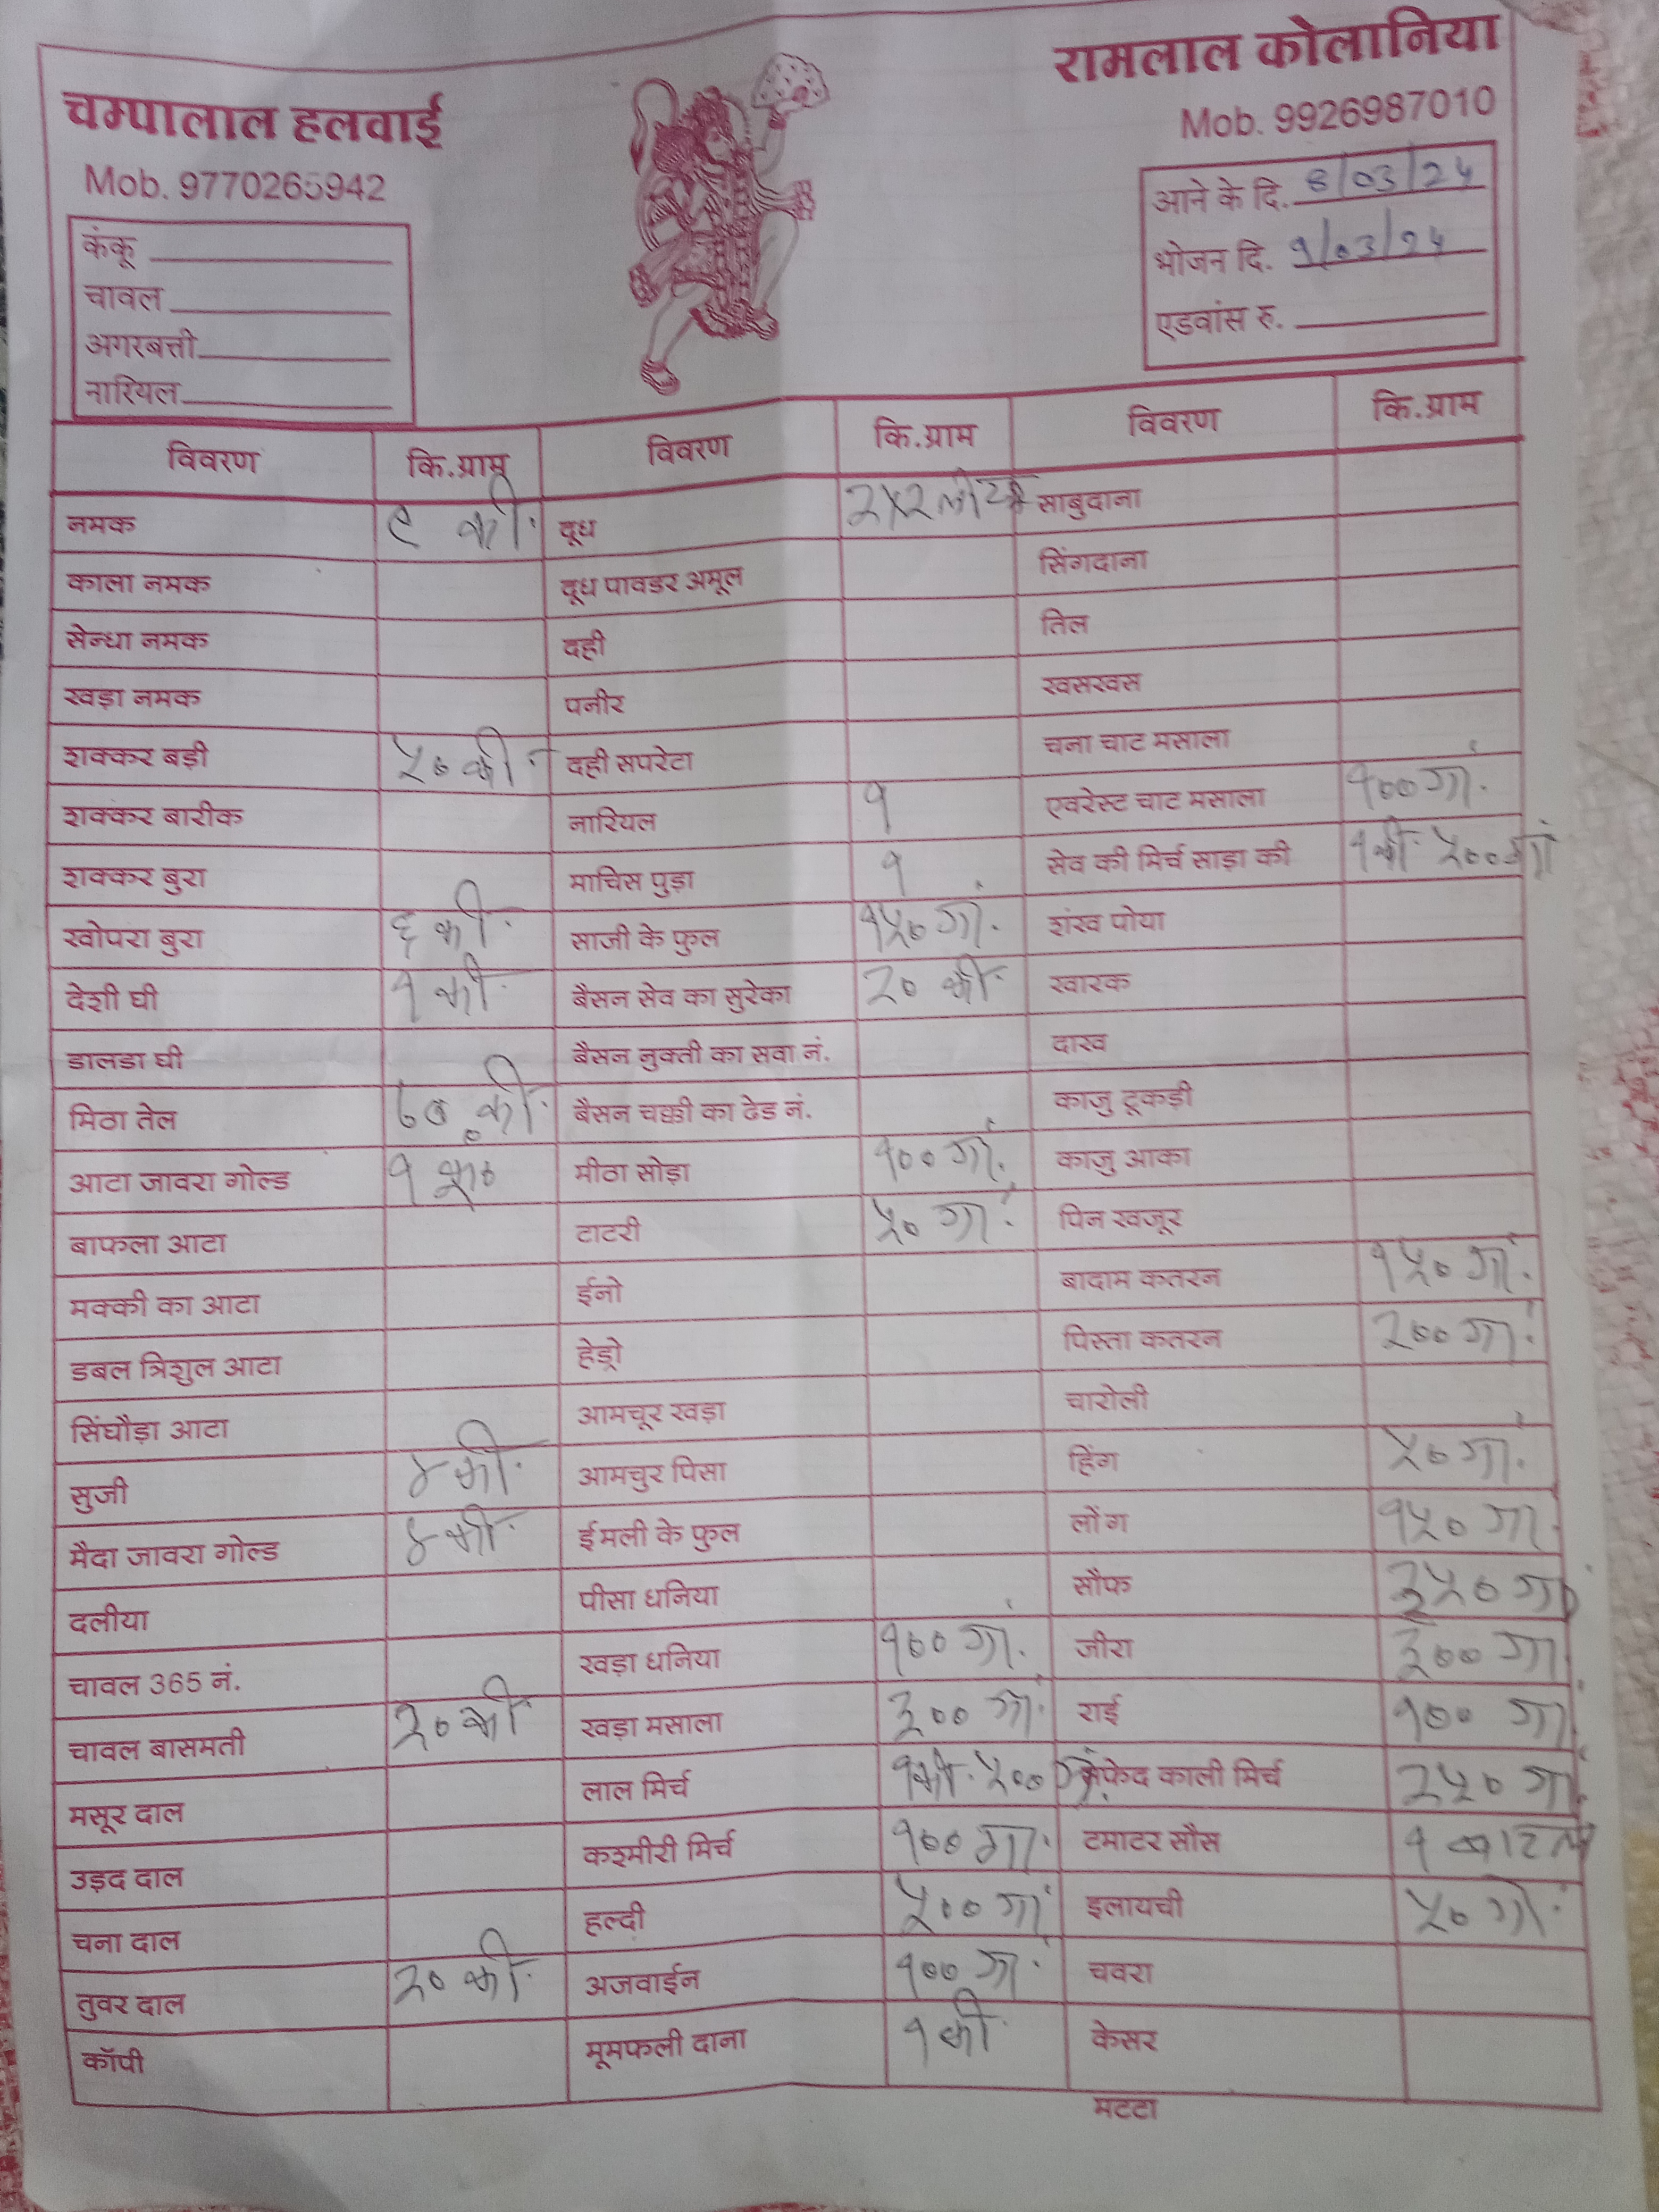 चम्पालाल हलवाई
Mob. 9770265942
रामलाल कोलानिया
Mob. 9926987010
कंकू
चावल
अगरबत्ती
नारियल
आने के दि. 8/03/24
भोजन दि. 9/03/24
एडवांस रु.
विवरण कि.ग्राम विवरण कि.ग्राम विवरण कि.ग्राम
नमक की. दूध साबुदाना
काला नमक दूध पावडर अमूल सिंगदाना
सेन्धा नमक दही तिल
खड़ा नमक पनीर खसखस
शक्कर बड़ी ५० की दही सपरेटा चना चाट मसाला
शक्कर बारीक नारियल १ एवरेस्ट चाट मसाला १०० ग्रा.
शक्कर बुरा माचिस पुड़ा १ सेव की मिर्च साड़ा की १ की. ५०० ग्रा
खोपरा बुरा ६ की. साजी के फुल १५० ग्रा. शंख पोया
देशी घी १ की. बैसन सेव का सुरेका २० की. खारक
डालडा घी बैसन नुक्ती का सवा नं. दाख
मिठा तेल की. बैसन चक्की का ढेड नं. काजु टूकड़ी
आटा जावरा गोल्ड १ मीठा सोड़ा १०० ग्रा. काजु आका
बाफला आटा टाटरी ५० ग्रा. पिन खजूर
मक्की का आटा ईनो बादाम कतरन १५० ग्रा.
डबल त्रिशुल आटा हेड्रो पिस्ता कतरन २०० ग्रा.
सिंघौड़ा आटा आमचूर खड़ा चारोली
सुजी ४ की. आमचुर पिसा हिंग ५० ग्रा.
मैदा जावरा गोल्ड ४ की. ईमली के फुल लोंग १५० ग्रा.
दलीया पीसा धनिया सौफ ३५० ग्रा
चावल 365 नं. खड़ा धनिया १०० ग्रा. जीरा ३०० ग्रा
चावल बासमती २० की खड़ा मसाला ३०० ग्रा. राई १०० ग्रा
मसूर दाल लाल मिर्च १ की. ५०० ग्रा. सफेद काली मिर्च २५० ग्रा.
उड़द दाल कश्मीरी मिर्च १०० ग्रा. टमाटर सौस १ बाटल
चना दाल हल्दी ५०० ग्रा इलायची ५० ग्रा.
तुवर दाल २० की. अजवाईन १०० ग्रा. चवरा
कॉपी मूमफली दाना १ की केसर
मटटा